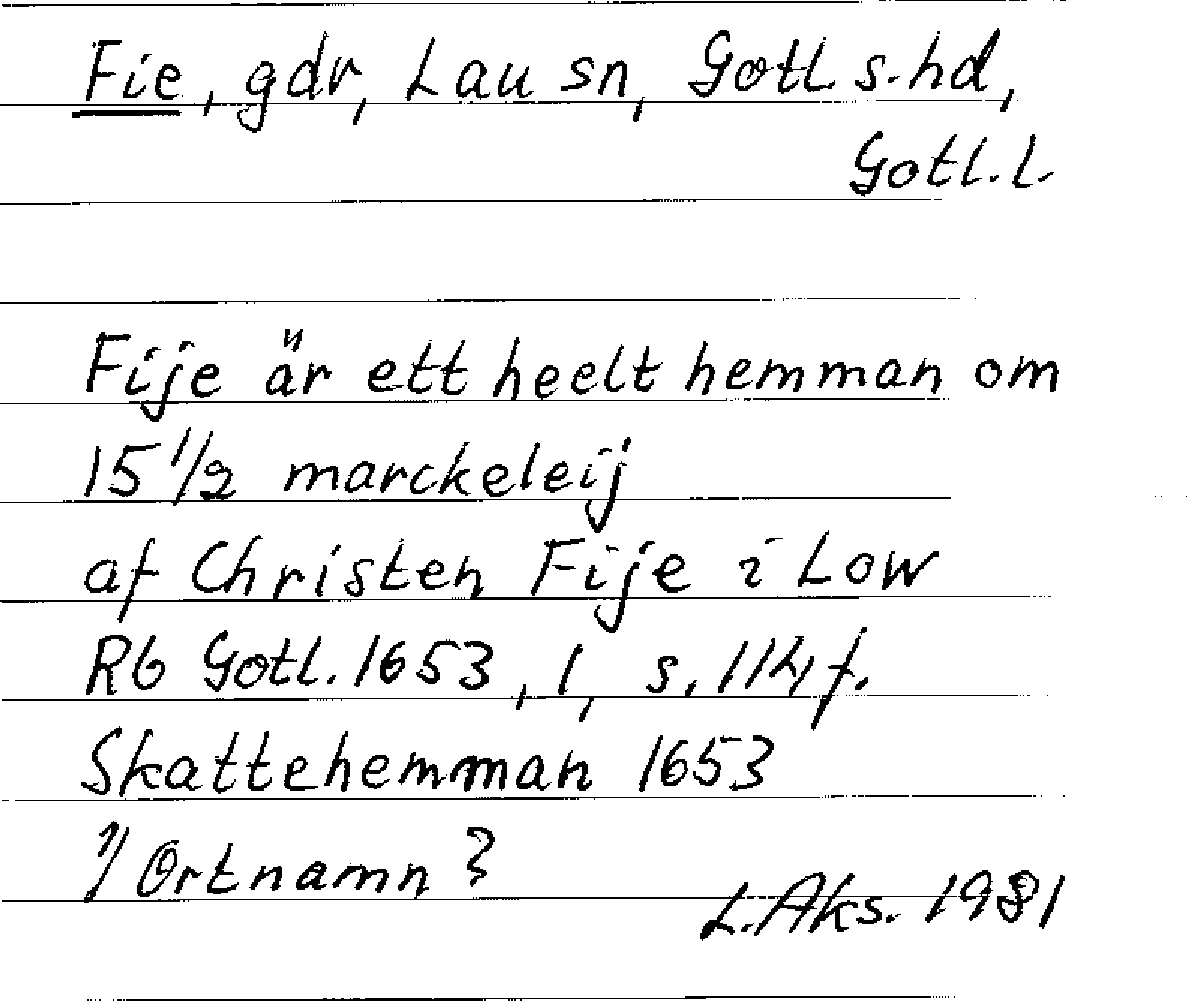 Fie, gdr, Lau sn, Gotl s.hd,
Gotl.l.
Fije är ett heelt hemman om
15 1/2 marckeleij
af Christen Fije i Low
Rb Gotl. 1653, 1, s. 114 f.
Skattehemman 1653
1) Ortnamn?
L.Aks. 1981